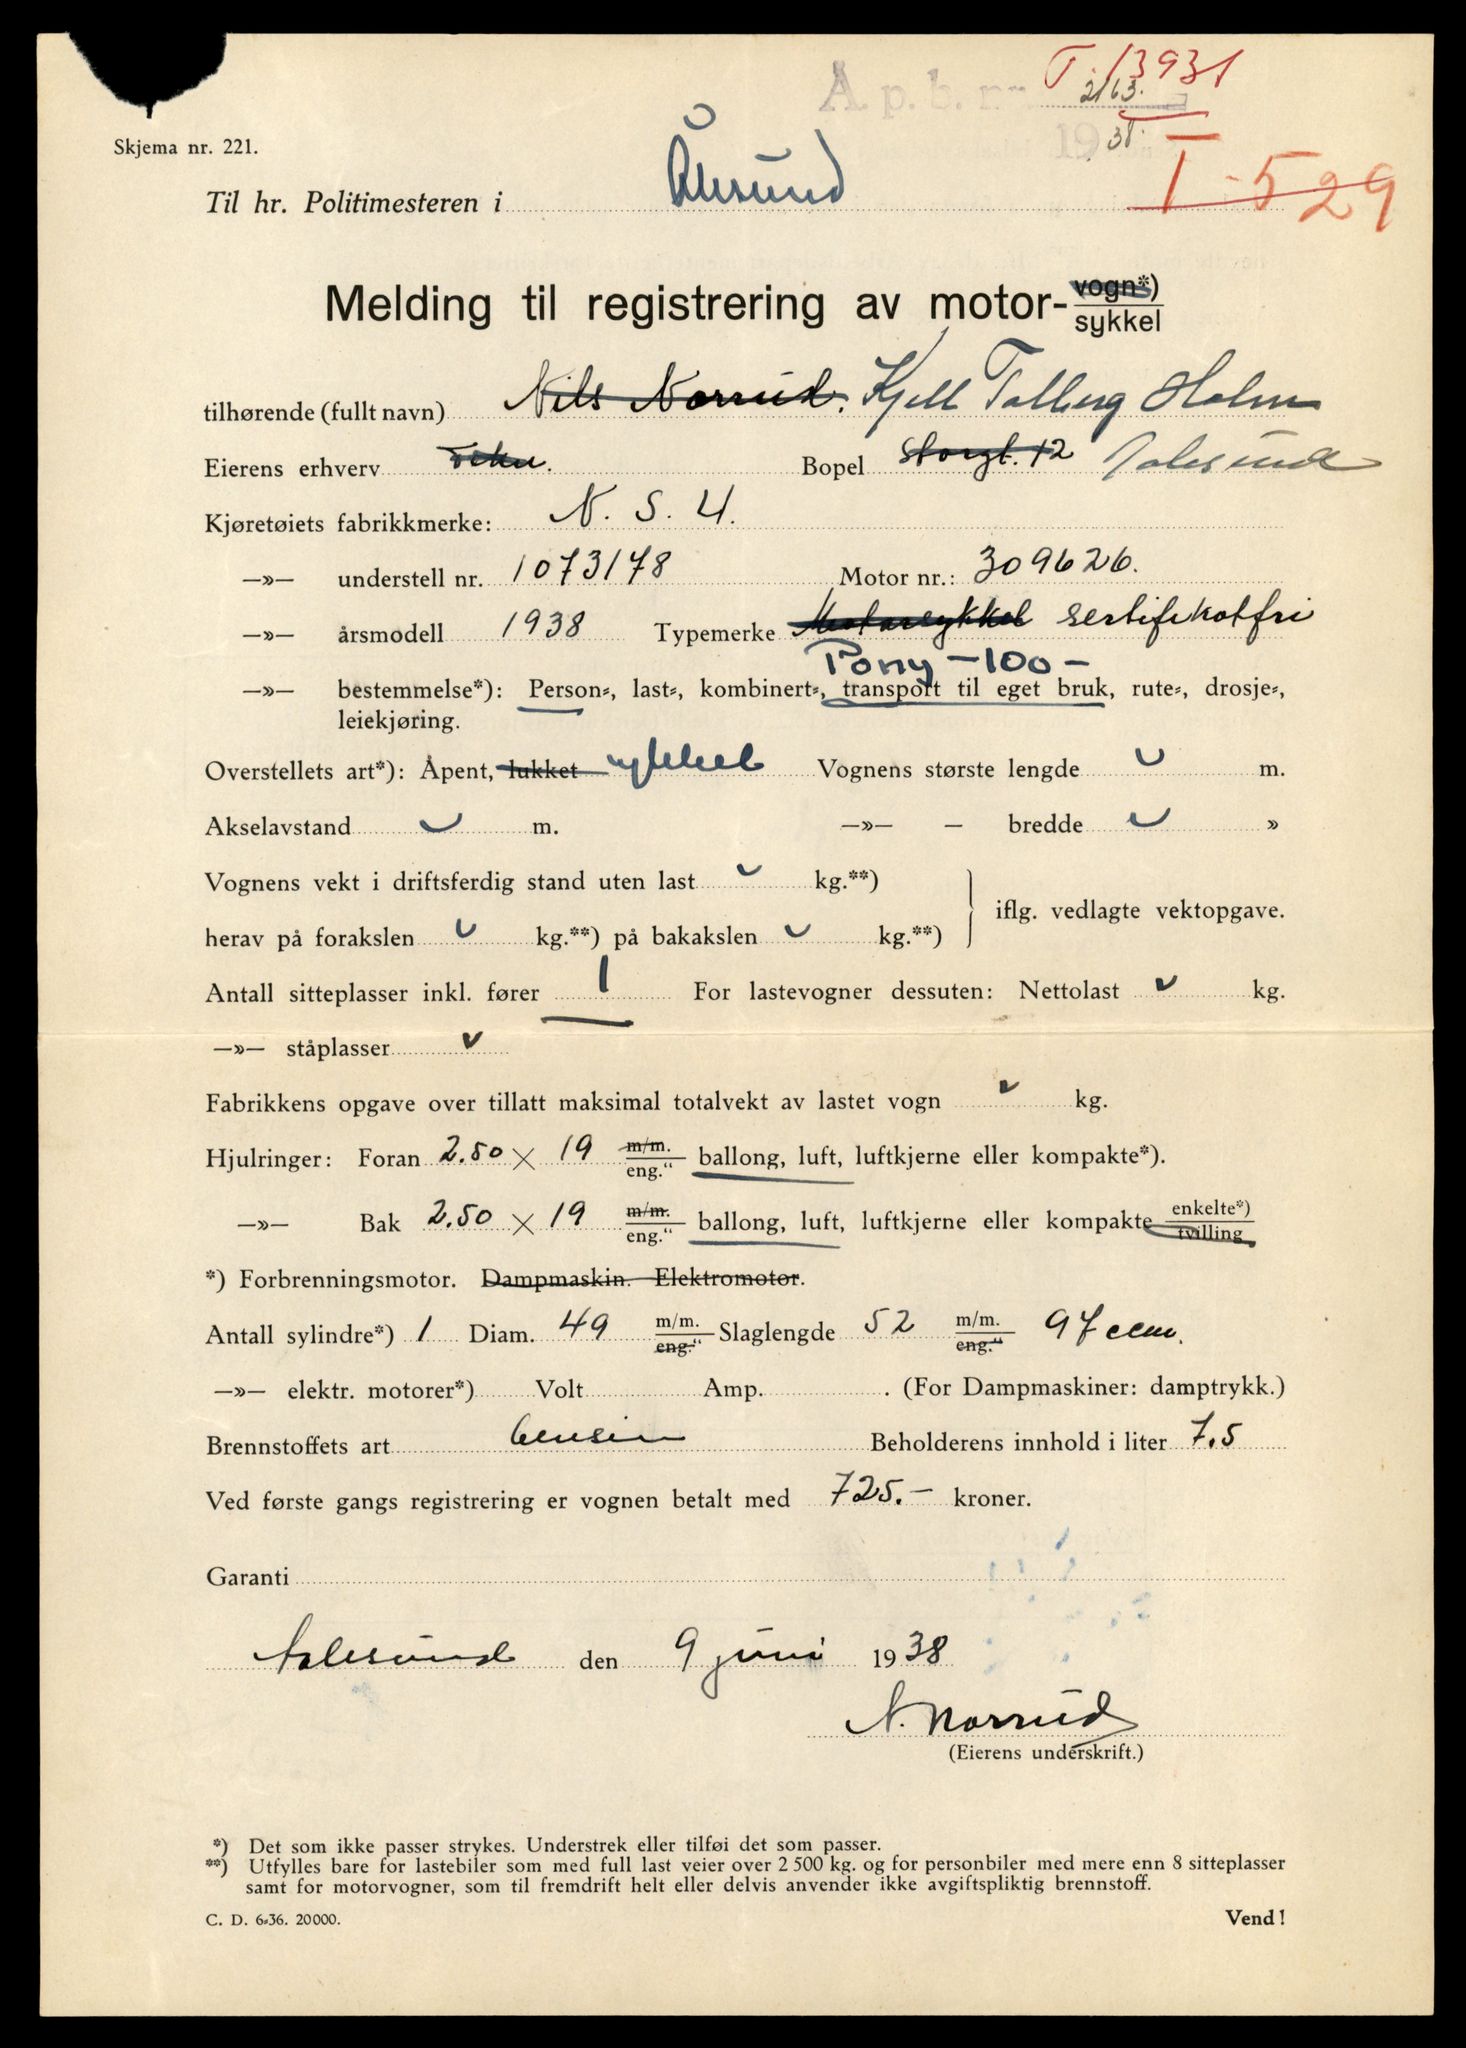 T. 13931
Å. p. b. nr. 2163
1938.
Skjema nr. 221.
Til hr. Politimesteren i Ålesund T-529
Melding til registrering av motor-vogn*) sykkel
tilhørende (fullt navn) Nils Norrud. Kjell Tolberg Holm
Eierens erhverv Bopel Storgt. 12 Aalesund
Kjøretøiets fabrikkmerke: N. S. U.
—»— understell nr. 1073178 Motor nr.: 309626.
—»— årsmodell 1938 Typemerke Motorsykkel sertifikatfri
Pony -100-
—»— bestemmelse*): Person-, last-, kombinert-, transport til eget bruk, rute-, drosje-,
leiekjøring.
Overstellets art*): Åpent, lukket sykkel Vognens største lengde m.
Akselavstand m. —»— — bredde »
Vognens vekt i driftsferdig stand uten last kg.**)
iflg. vedlagte vektopgave.
herav på forakslen kg.**) på bakakslen kg.**)
Antall sitteplasser inkl. fører 1 For lastevogner dessuten: Nettolast kg.
—»— ståplasser
Fabrikkens opgave over tillatt maksimal totalvekt av lastet vogn kg.
Hjulringer: Foran 2.50 × 19 m/m. eng." ballong, luft, luftkjerne eller kompakte*).
—»— Bak 2.50 × 19 m/m. eng." ballong, luft, luftkjerne eller kompakte enkelte*) tvilling
*) Forbrenningsmotor. Dampmaskin. Elektromotor.
Antall sylindre*) 1 Diam. 49 m/m. eng." Slaglengde 52 m/m. eng." 97 ccm.
—»— elektr. motorer*) Volt Amp. . (For Dampmaskiner: damptrykk.)
Brennstoffets art Bensin Beholderens innhold i liter 7.5
Ved første gangs registrering er vognen betalt med 725.- kroner.
Garanti
Aalesund den 9 juni 1938
N. Norrud
(Eierens underskrift.)
*) Det som ikke passer strykes. Understrek eller tilføi det som passer.
**) Utfylles bare for lastebiler som med full last veier over 2 500 kg. og for personbiler med mere enn 8 sitteplasser
samt for motorvogner, som til fremdrift helt eller delvis anvender ikke avgiftspliktig brennstoff.
C. D. 6-36. 20000. Vend!